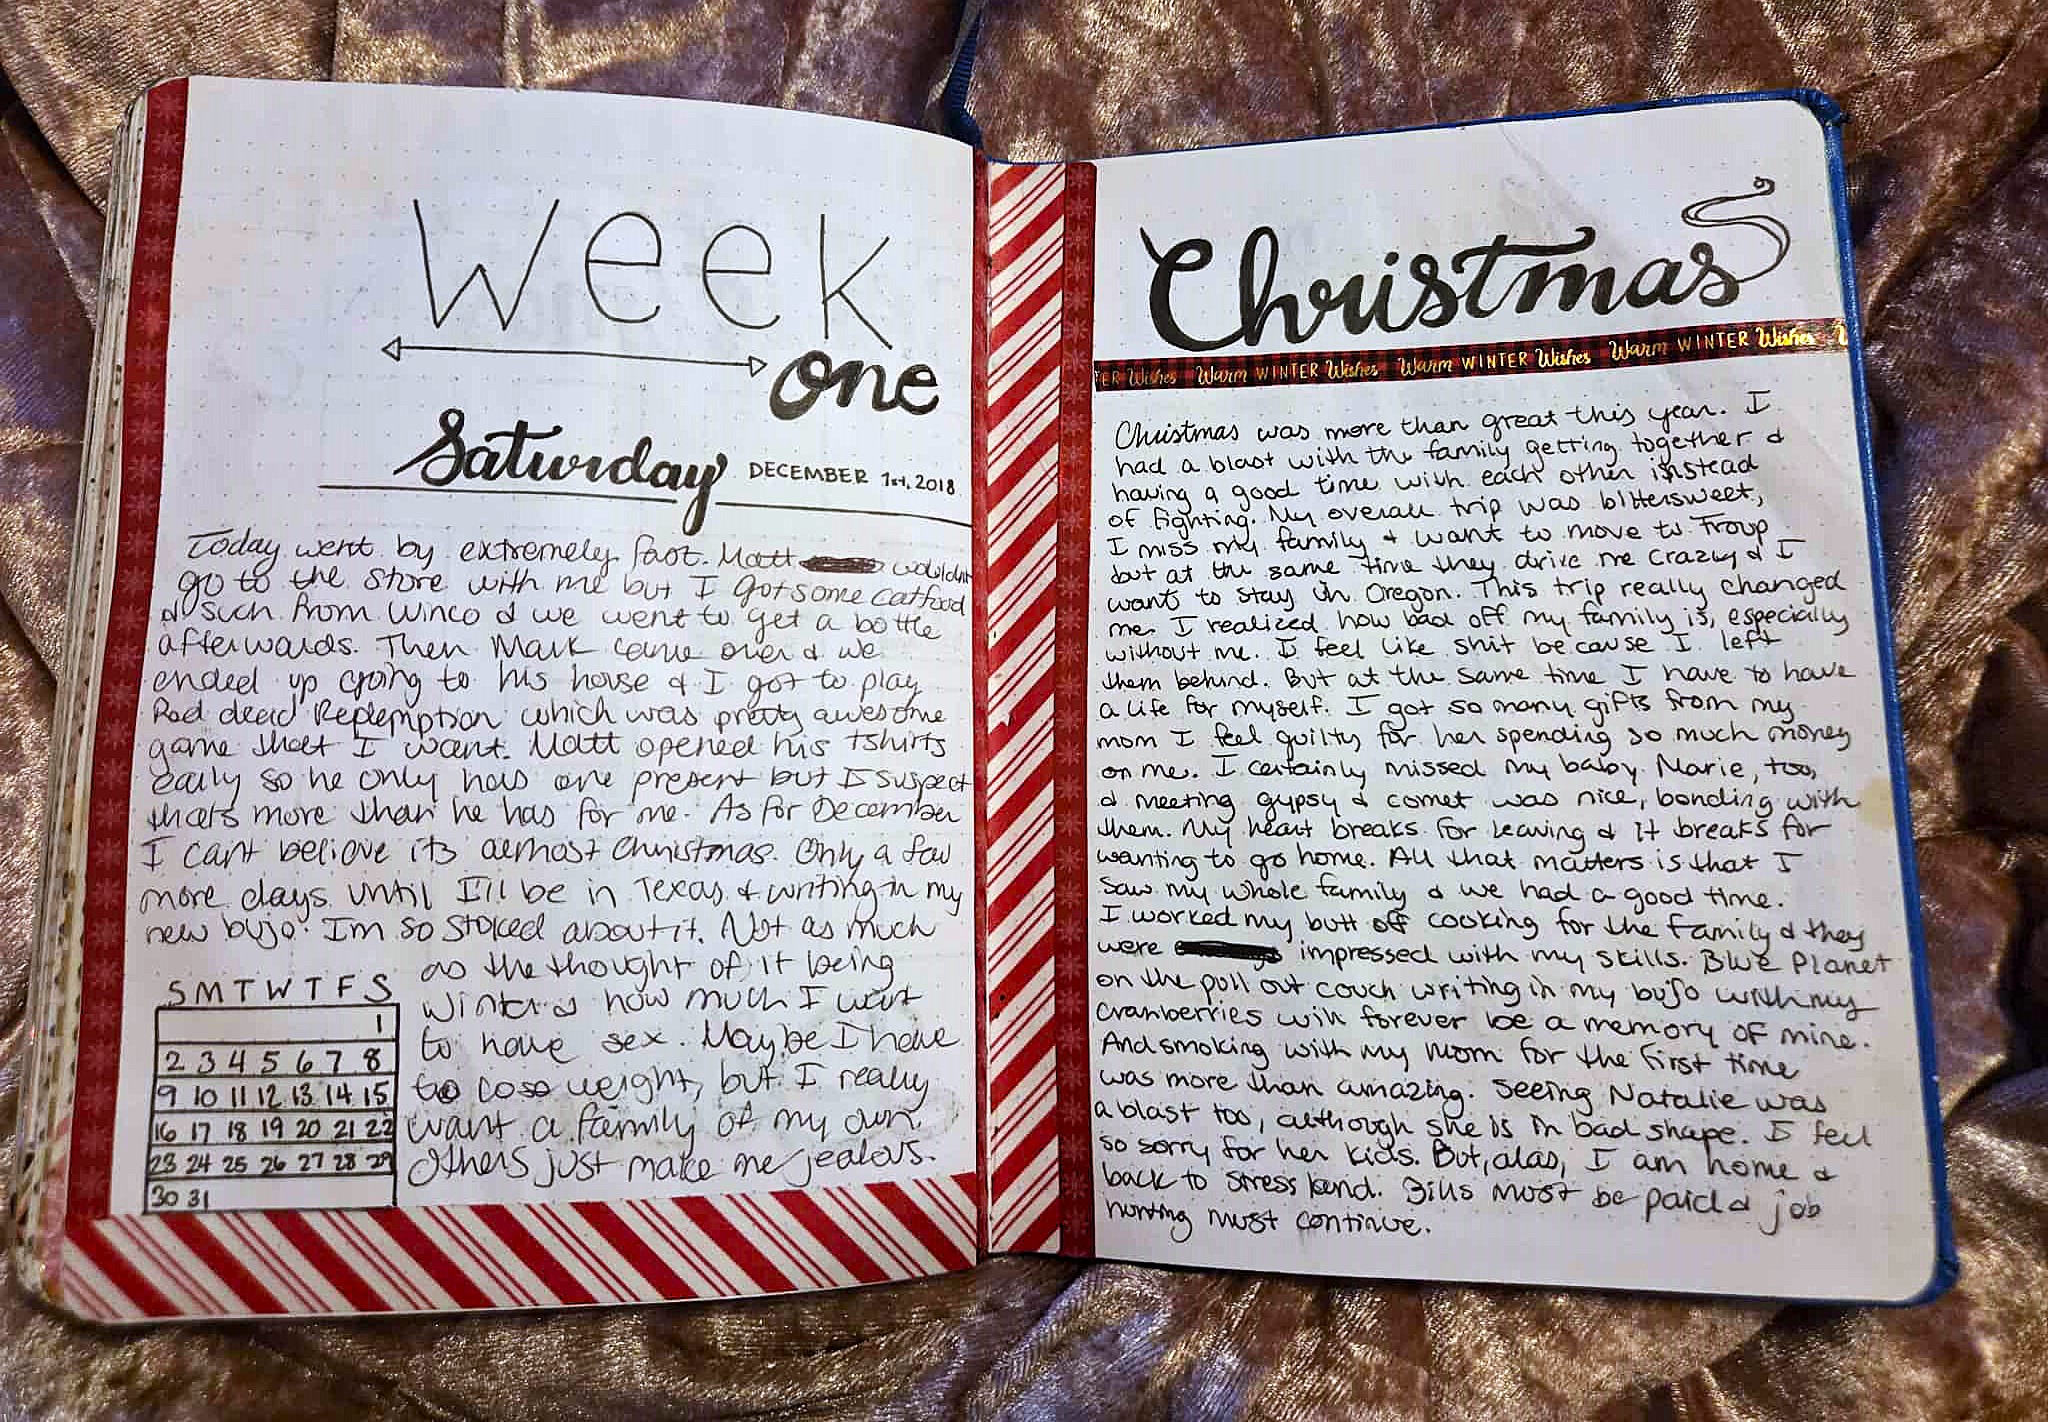 Week
one
Saturday DECEMBER 1st, 2018
Today went by extremely fast. Matt wouldn't
go to the store with me but I got some catfood
& such from Winco & we went to get a bottle
afterwards. Then Mark came over & we
ended up going to his house & I got to play
Red dead Redemption which was pretty awesome
game that I want. Matt opened his tshirts
early so he only has one present but I suspect
thats more than he has for me. As for December
I can't believe its almost Christmas. Only a few
more days until I'll be in Texas & writing in my
new bujo. Im so stoked about it. Not as much
as the thought of it being
winter & how much I want
to have sex. Maybe I have
to lose weight, but I really
want a family of my own.
Others just make me jealous.
S M T W T F S
1
2 3 4 5 6 7 8
9 10 11 12 13 14 15
16 17 18 19 20 21 22
23 24 25 26 27 28 29
30 31
Christmas
ER Wishes Warm WINTER Wishes Warm WINTER Wishes Warm WINTER Wishes
Christmas was more than great this year. I
had a blast with the family getting together &
having a good time with each other instead
of fighting. My overall trip was bittersweet,
I miss my family & want to move to Troup
but at the same time they drive me crazy & I
want to stay in Oregon. This trip really changed
me. I realized how bad off my family is, especially
without me. I feel like shit because I left
them behind. But at the same time I have to have
a life for myself. I got so many gifts from my
mom I feel guilty for her spending so much money
on me. I certainly missed my baby Marie, too,
& meeting gypsy & comet was nice, bonding with
them. My heart breaks for leaving & it breaks for
wanting to go home. All that matters is that I
saw my whole family & we had a good time.
I worked my butt off cooking for the family & they
were impressed with my skills. Blue Planet
on the pull out couch writing in my bujo with my
cranberries will forever be a memory of mine.
And smoking with my mom for the first time
was more than amazing. Seeing Natalie was
a blast too, although she is in bad shape. I feel
so sorry for her kids. But, alas, I am home &
back to stress land. Bills must be paid & job
hunting must continue.